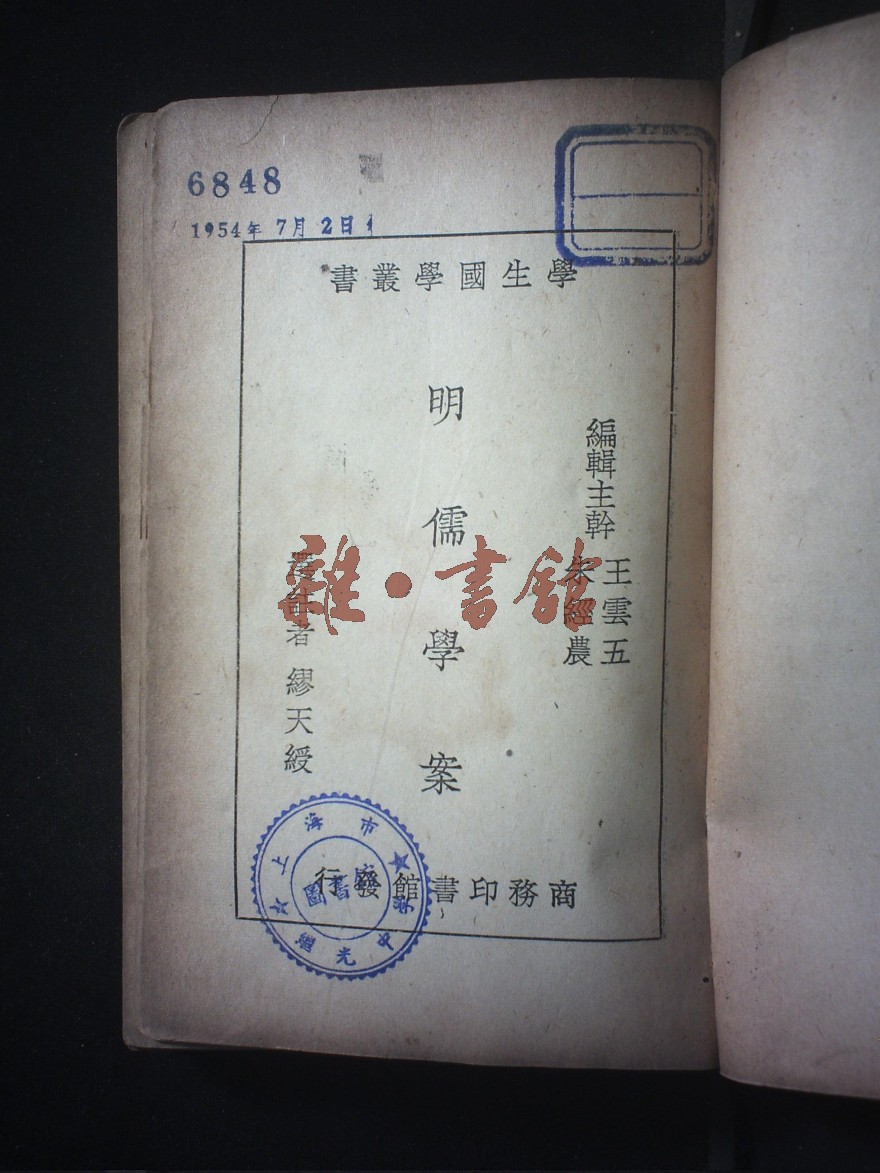 6848
1954年 7月 2日
學生國學叢書
編輯主幹 王雲五
朱經農
明儒學案
選註者 繆天綬
商務印書館發行
雜·書館
上海市
圖書
光